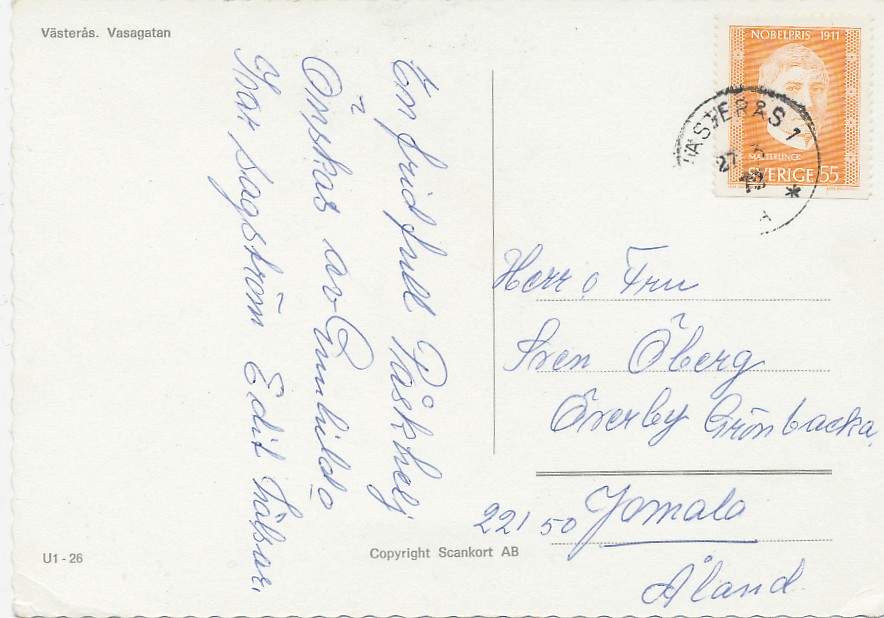 Västerås. Vasagatan
En fridfull Påskhelj
Önskas av Gunhild o
Ivar, sagström Edit hälsar.
NOBELPRIS 1911
MAETERLINCK
SVERIGE 55
VÄSTERÅS 1
27
73
*
A
Herr o Fru
Sven Öberg
Överby Grönbacka,
22150 Jomala
Åland.
U1 - 26
Copyright Scankort AB